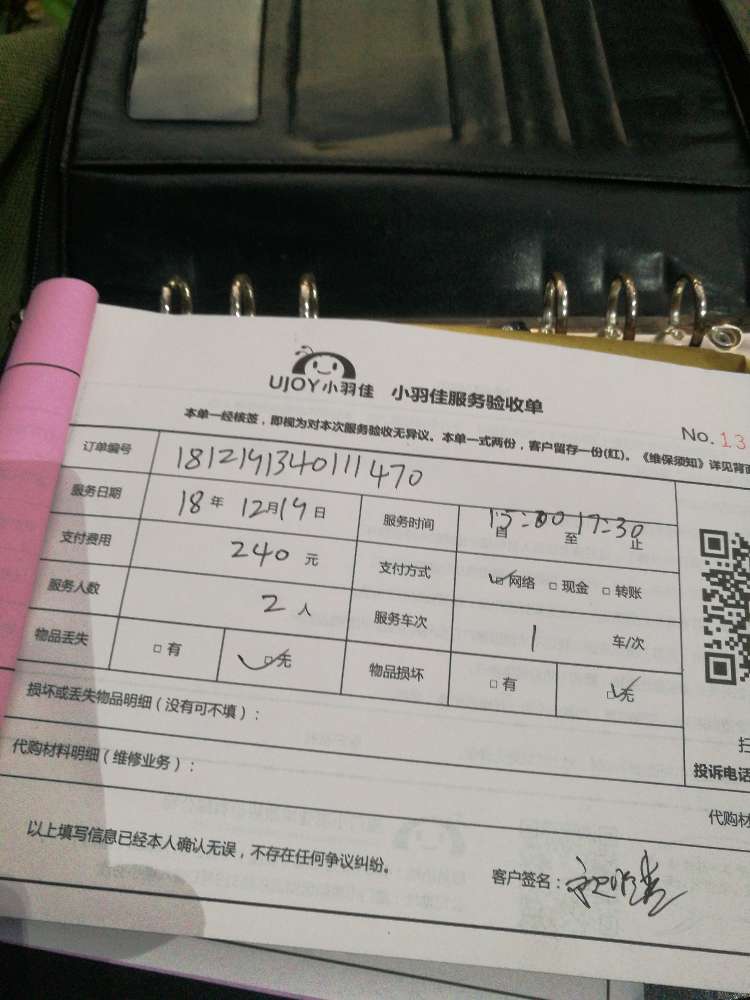 UJOY小羽佳 小羽佳服务验收单
本单一经核签，即视为对本次服务验收无异议。本单一式两份，客户留存一份(红)。《维保须知》详见背面
No. 13
订单编号 1812191340111470
服务日期 18年 12月19日 服务时间 15:00 17:30 自 至 止
支付费用 240 元 支付方式 ☑网络 □现金 □转账
服务人数 2 人 服务车次 1 车/次
物品丢失 □有 ☑无 物品损坏 □有 ☑无
损坏或丢失物品明细（没有可不填）：
扫
投诉电话
代购材料明细（维修业务）：
代购材
以上填写信息已经本人确认无误，不存在任何争议纠纷。
客户签名：